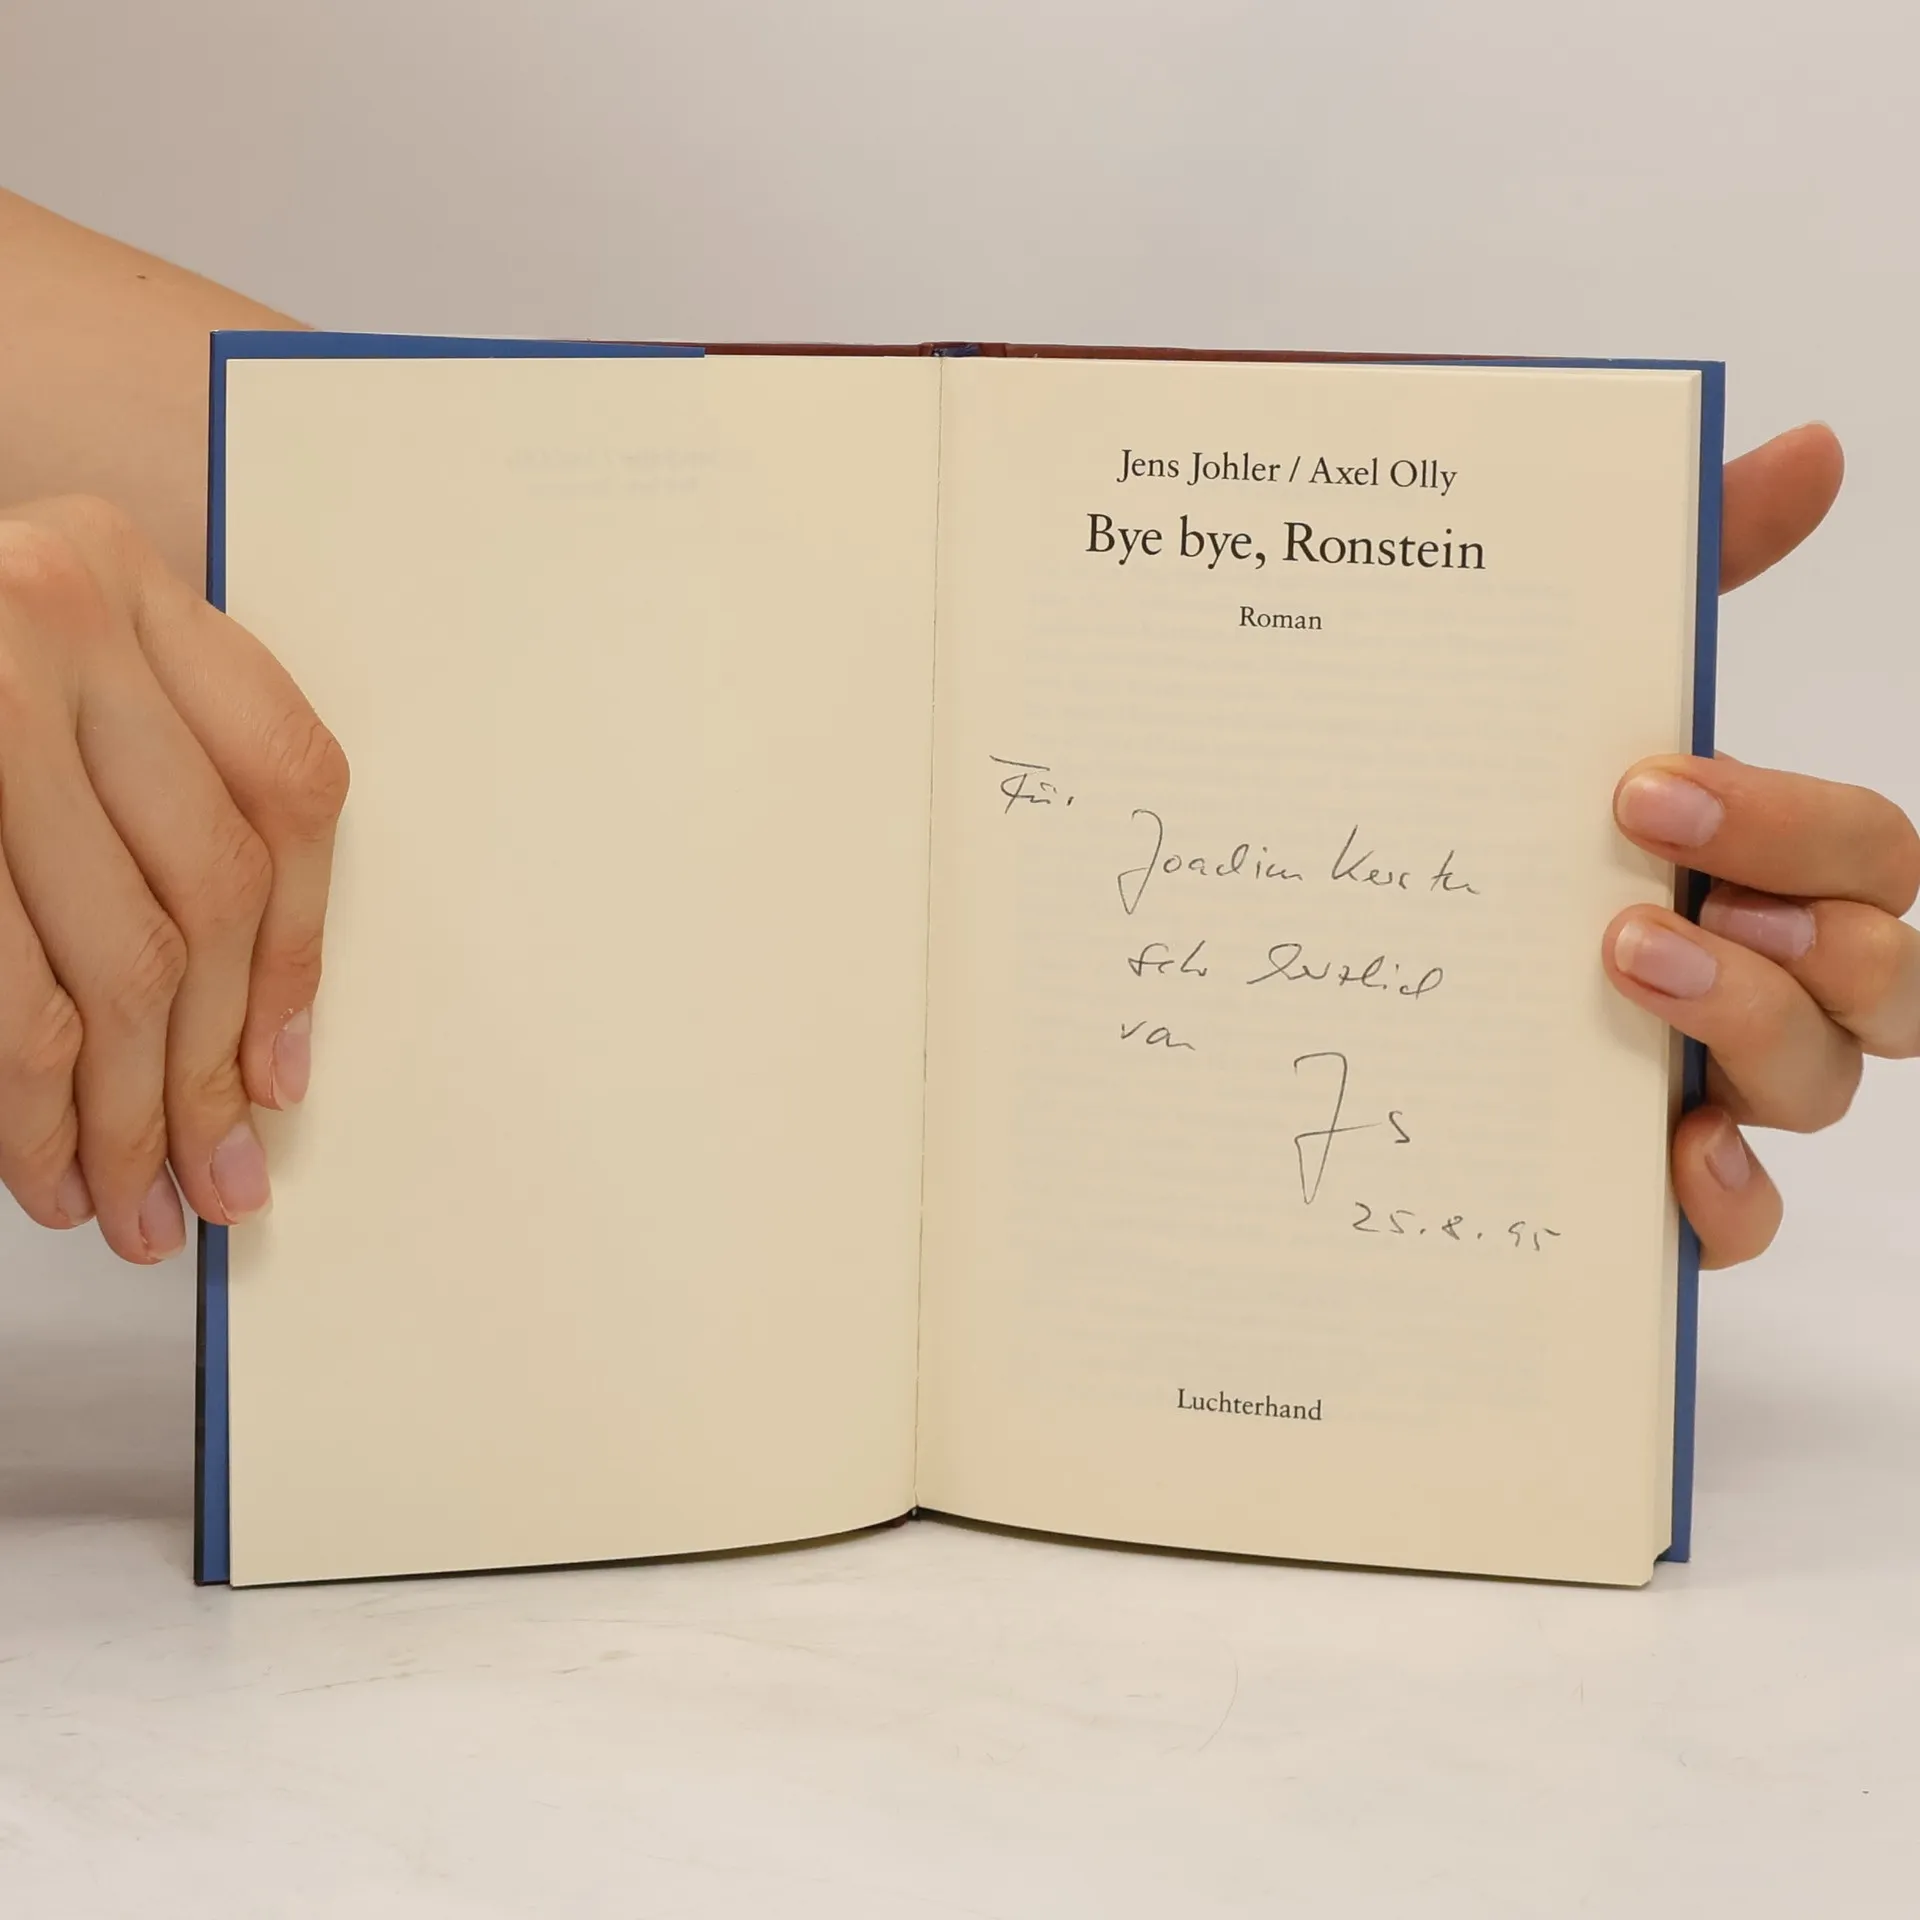 Jens Johler / Axel Olly
Bye bye, Ronstein
Roman
Für
Joachim Kersten
sehr herzlich
von
Js
25.8.95
Luchterhand